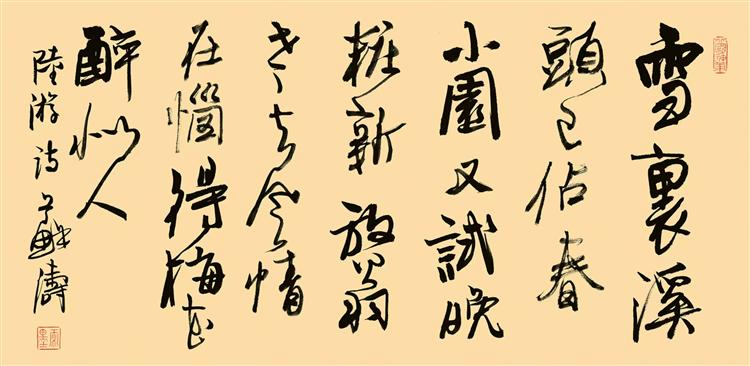 雪裏溪
頭已佔春
小園又試晚
粧新放翁
老去風情
在惱得梅花
醉似人
陸游詩